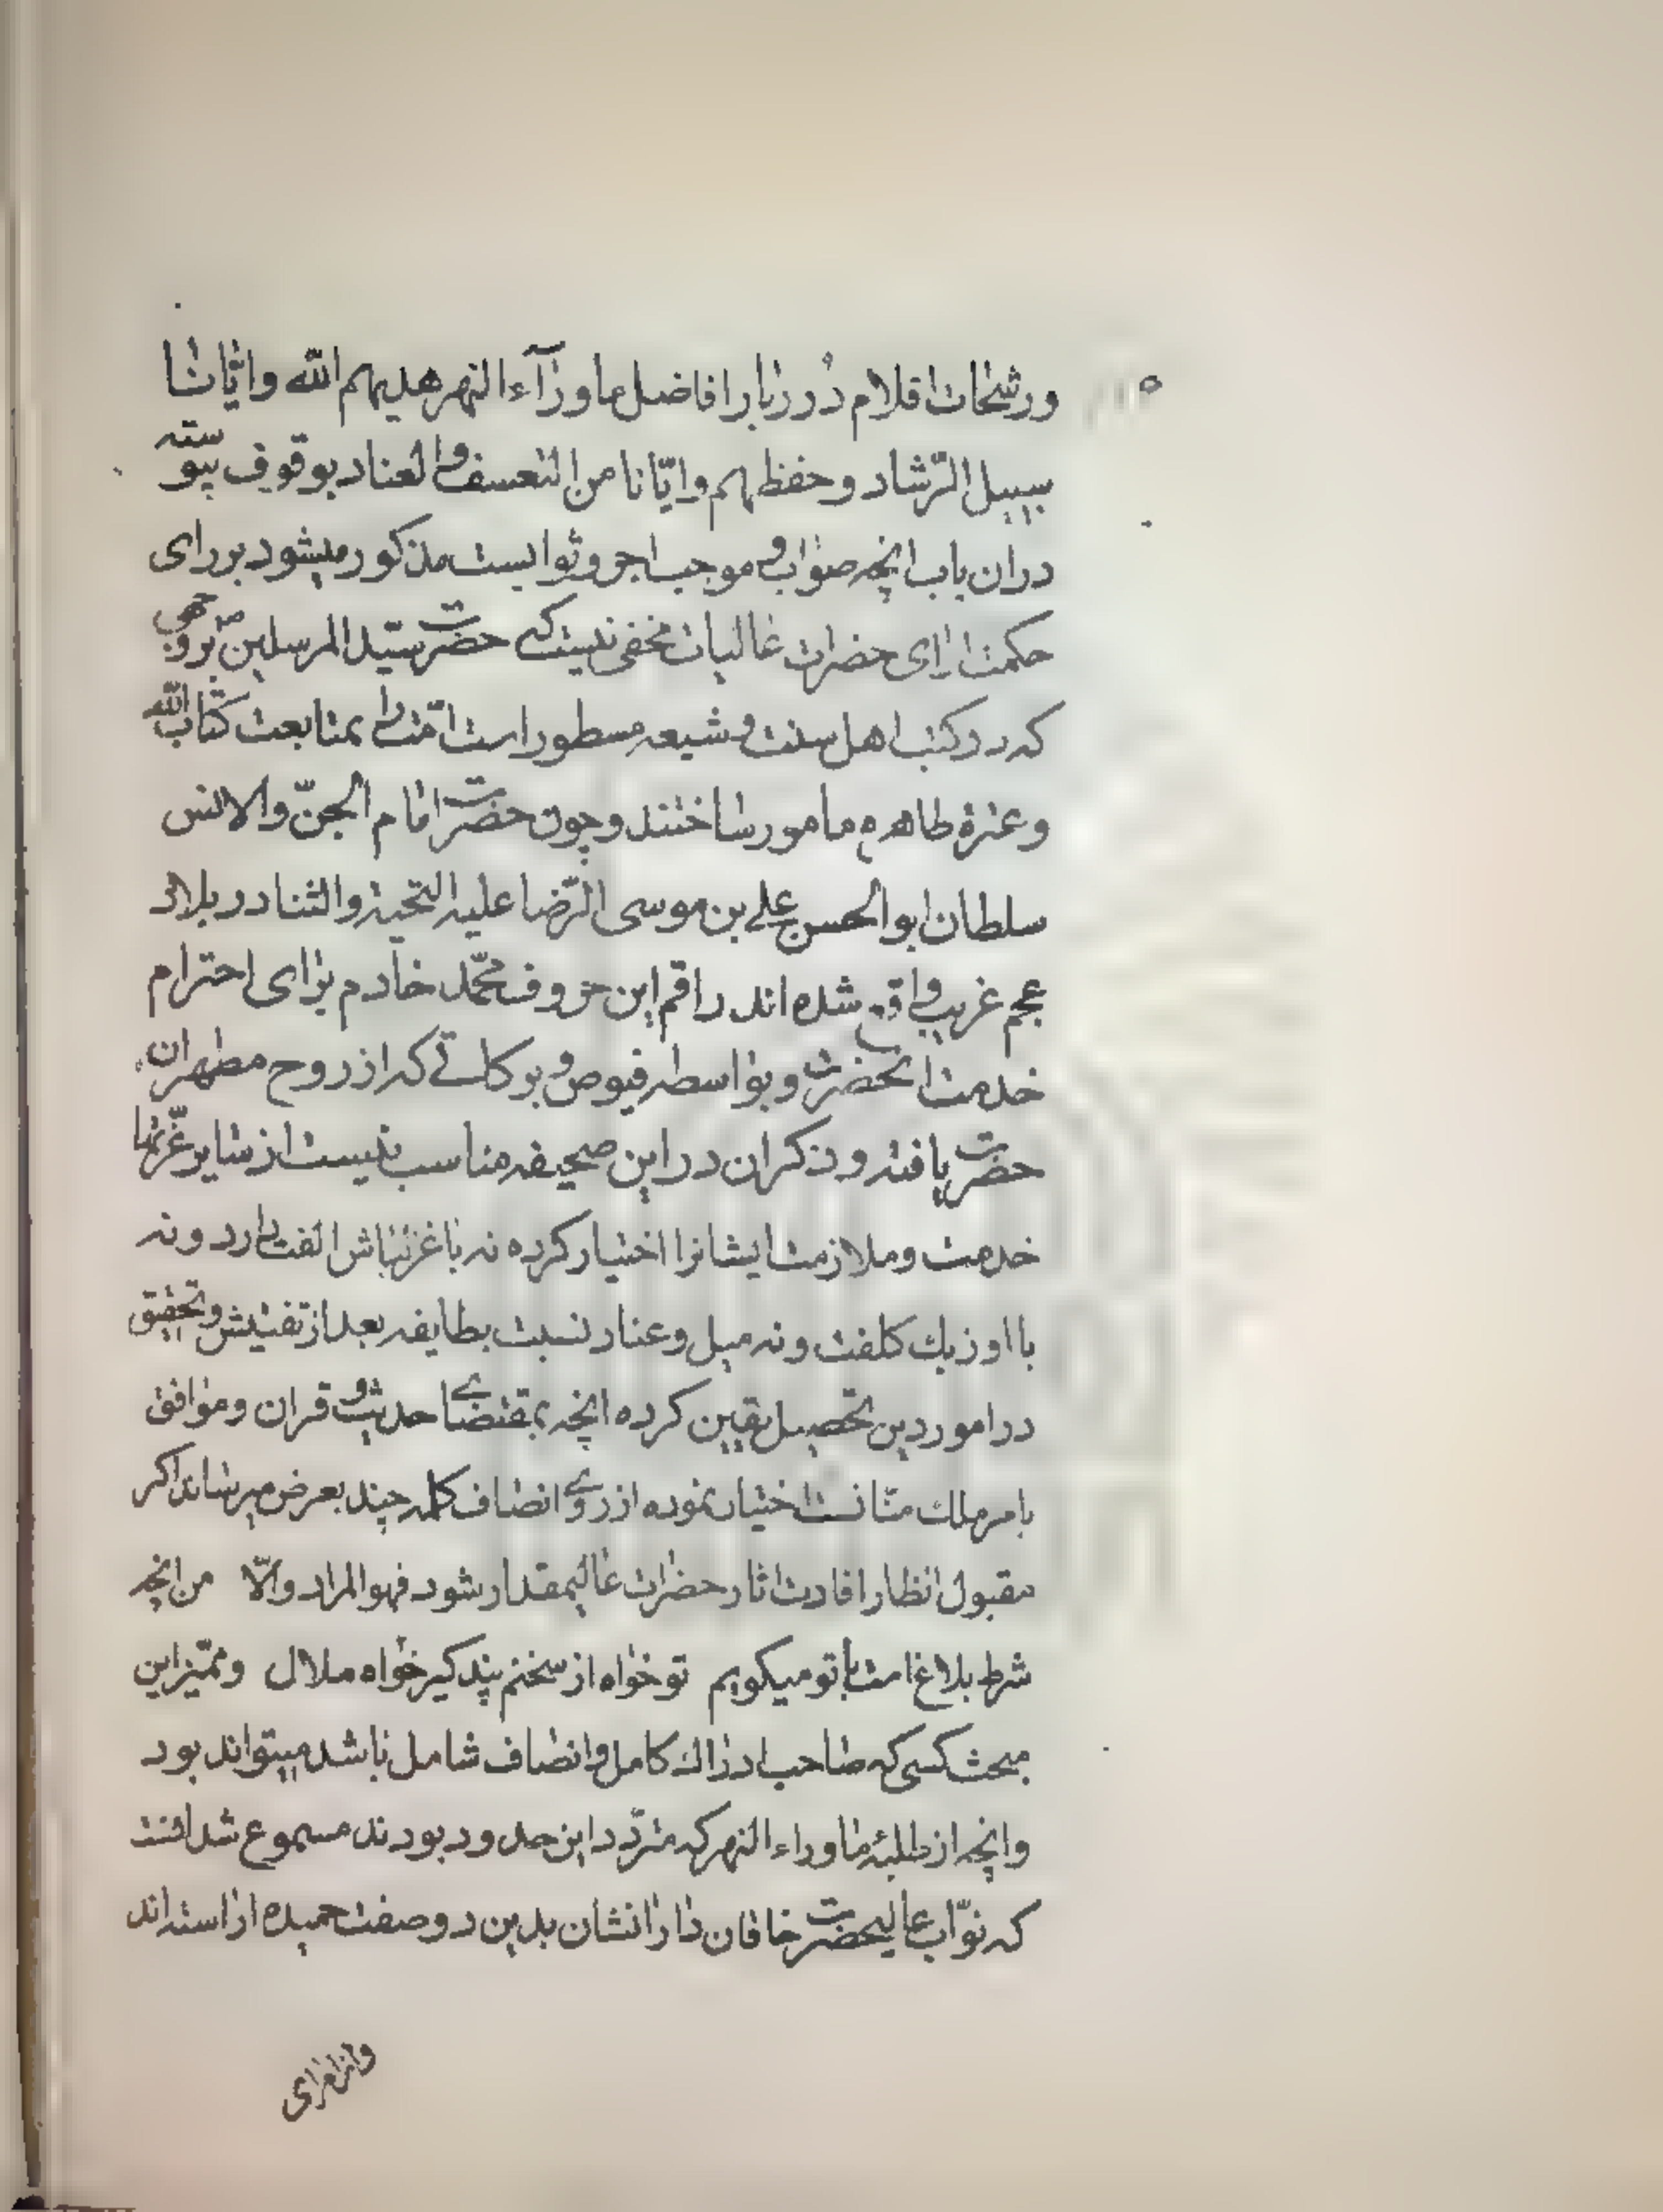 ورشحات اقلام درربار افاضل ماورآء النهر هدیهم الله وایّانا
سبیل الرّشاد وحفظهم وایّانا من التعسف والعناد بوقوف پیوسته
دران باب انچه صواب و موجب اجر و ثوابست مذکور میشود بر رای
حکمت ارای حضرات عالیات مخفی نیست که حضرت سیّد المرسلین ص بر وجهی
که در کتب اهل سنت و شیعه مسطور است امّت را بمتابعت کتاب الله
وعترة طاهره مامور ساختند وچون حضرت امام الجنّ والانس
سلطان ابو الحسن علی بن موسی الرّضا علیه التحیة والثنا در بلاد
عجم غریب واقع شده اند راقم این حروف محمّد خادم برای احترام
خدمت انحضرت و بواسطه فیوض و برکاتی که از روح مطهر ان
حضرت یافته و ذکر ان در این صحیفه مناسب نیست از سایر
خدمت و ملازمت ایشانرا اختیار کرده نه با قزلباش الفت دارد و نه
با اوزبك کلفت و نه میل و عناد نسبت بطایفه بعد از تفتیش و تحقیق
در امور دین تحصیل یقین کرده انچه بمقتضای احدیث و قران و موافق
بامر ملك منّانست اختیار نموده از روی انصاف کلمه چند بعرض میرساند اکر
مقبول انظار افادت اثار حضرات عالیمقدار شود فهو المراد والّا من انچه
شرط بلاغ است با تو میکویم تو خواه از سخنم پند کیر خواه ملال و ممیّز این
مبحث کسی که صاحب ادراك کامل و انصاف شامل باشد میتواند بود
وانچه از طلبهٔ ماوراء النهر که متردّد این حدود بودند مسموع شد انست
که نوّاب عالیحضرت خاقان دارا نشان بدین دو صفت حمیده اراسته اند